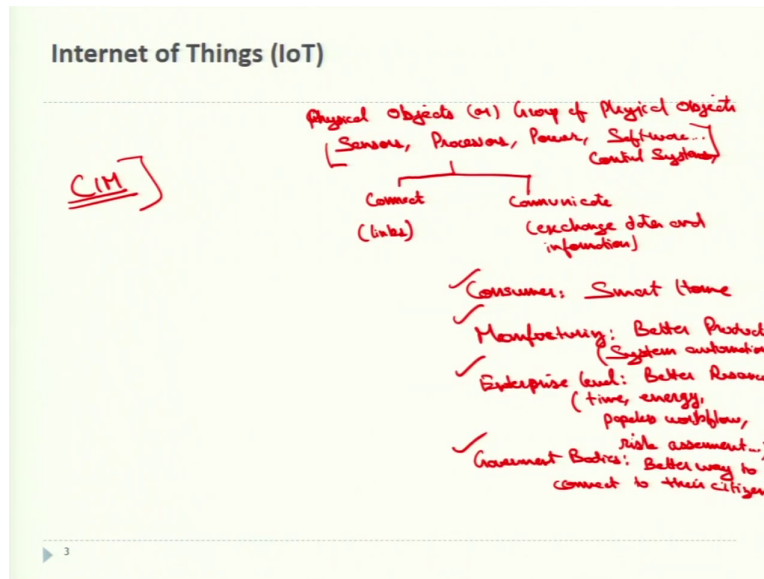 Internet of Things (IoT)
Physical Objects (or) Group of Physical Objects
[Sensors, Processors, Power, Software...]
Control Systems
CIM]
Connect
Communicate
(links)
(exchange data and
information)
✓Consumer: Smart Home
✓Manfacturing: Better Product
(System automation
✓Enterprise level: Better
(time, energy,
workflow,
risk assesment...)
✓Government Bodies: Better way to
connect to their citizen
3